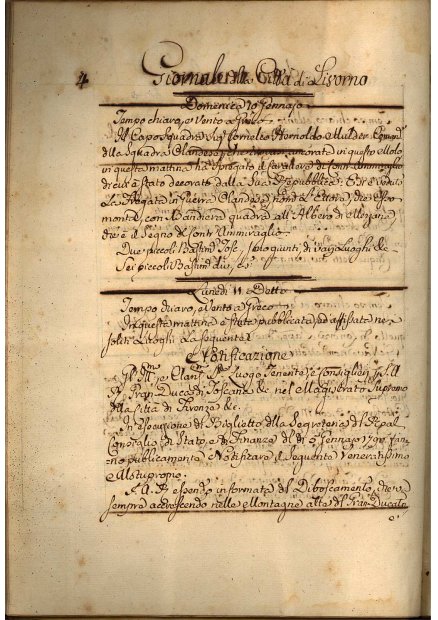 4 Giornale della Città di Livorno
Domenica 10 Gennaio
Tempo chiaro, e Vento a Greco
Il Capo Squadra Sig.r Cornelio Mulder Coman.
della Squadra Olandese che ancorata in questo Molo
in questa mattina ha spiegato il carattere di Contr'Ammiraglio
di cui è stato decorato dalla Sua Repubblica: E si è veduto
la Fregata in Guerra Olandese nom.a l'Ettore,
con Bandiera quadra all'Albero di Mezzana,
che è il Segno di Contr'Ammiraglio
Due piccoli Bastim. giunti da varj Luoghi &c
Sei piccoli Bastim. &c.
Lunedì 11 Detto
Tempo chiaro, e Vento a Greco
In questa mattina è stata pubblicata, ed affissata ne
soliti Luoghi la seguente
Notificazione
Gl'Ill.mi Luogo Tenente, e Consiglieri di S.A.R.
Gran Duca di Toscana &c nel Magistrato Supremo
della Città di Firenze &c.
In esecuzione di Biglietto della Segreteria del Real
Consiglio di Stato, e Finanze del dì Gennaio 1790 fan=
=no pubblicamente Notificare il Seguente Veneratissimo
Motuproprio.
S.A.R. essendo informata del Diboscamento, che và
sempre accrescendo nelle Montagne alte del Gran-Ducato